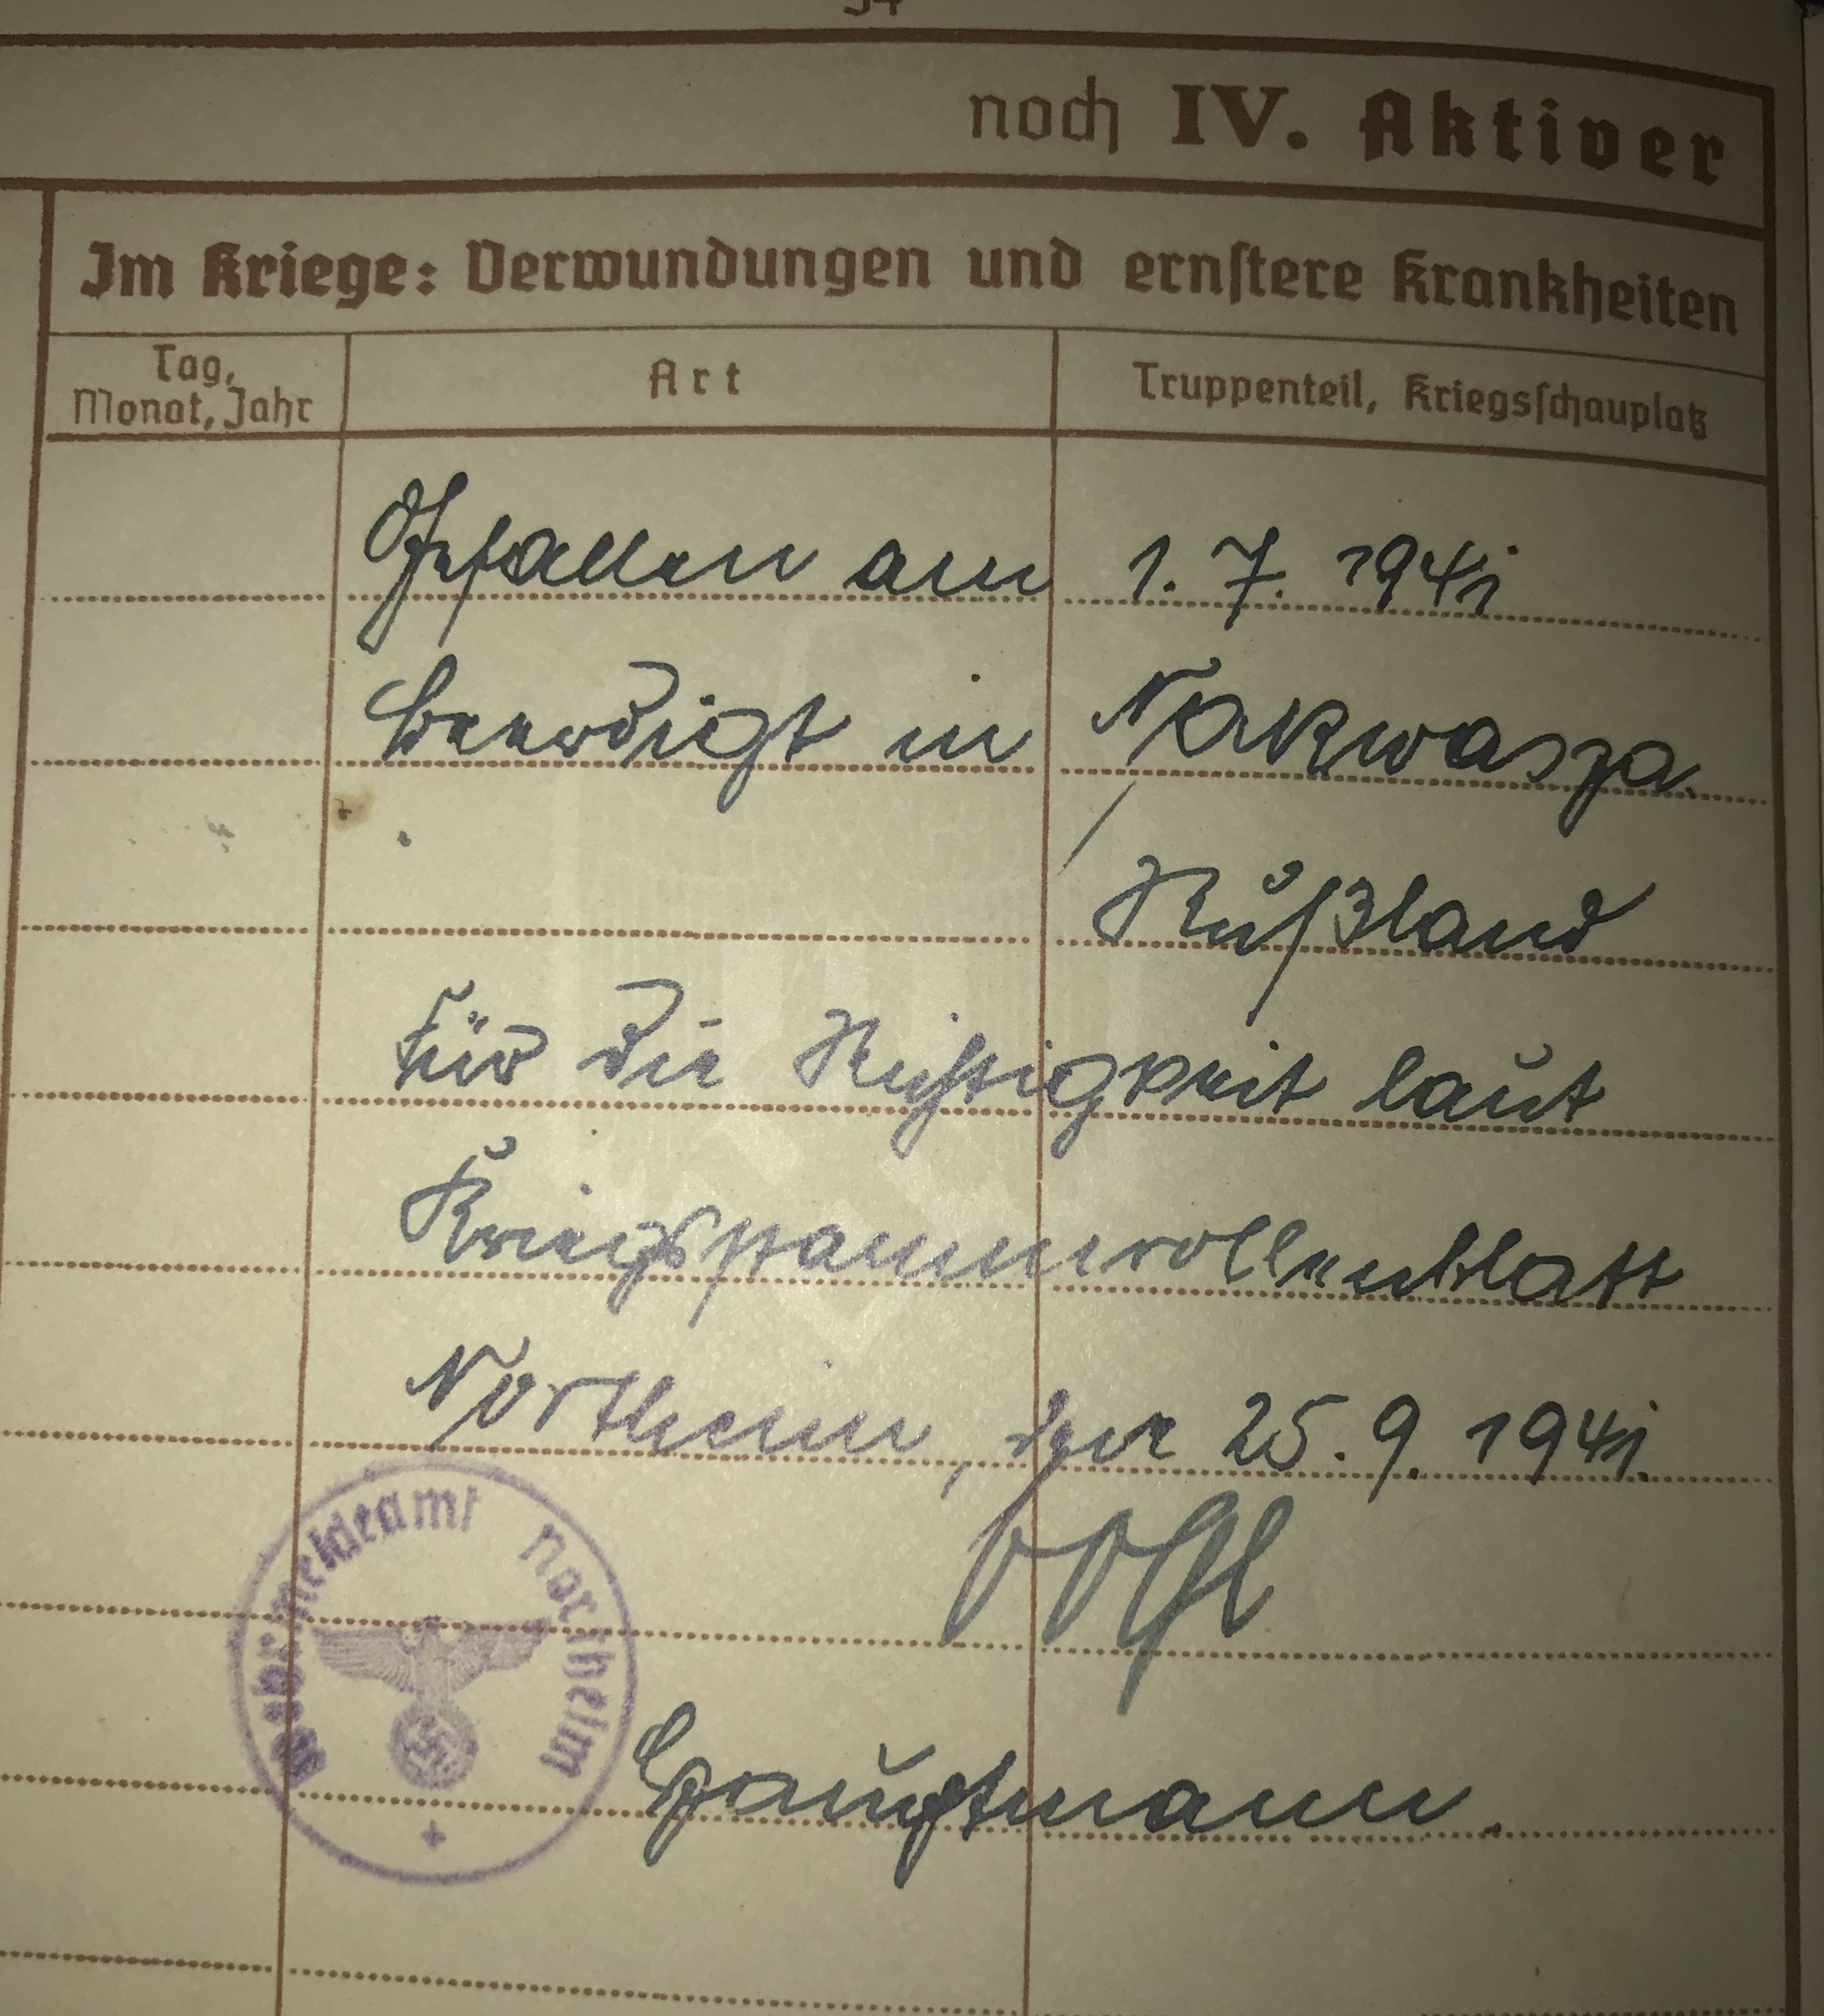 34
noch IV. Aktiver
Im Kriege: Verwundungen und ernstere Krankheiten
Tag, Monat, Jahr
Art
Truppenteil, Kriegsschauplatz
Gefallen am 1. 7. 1941
beerdigt in Nakwasza.
Rußland
Für die Richtigkeit laut
Kriegsstammrollenblatt
Northeim, den 25. 9. 1941.
Hauptmann.
Wehrmeldeamt Northeim